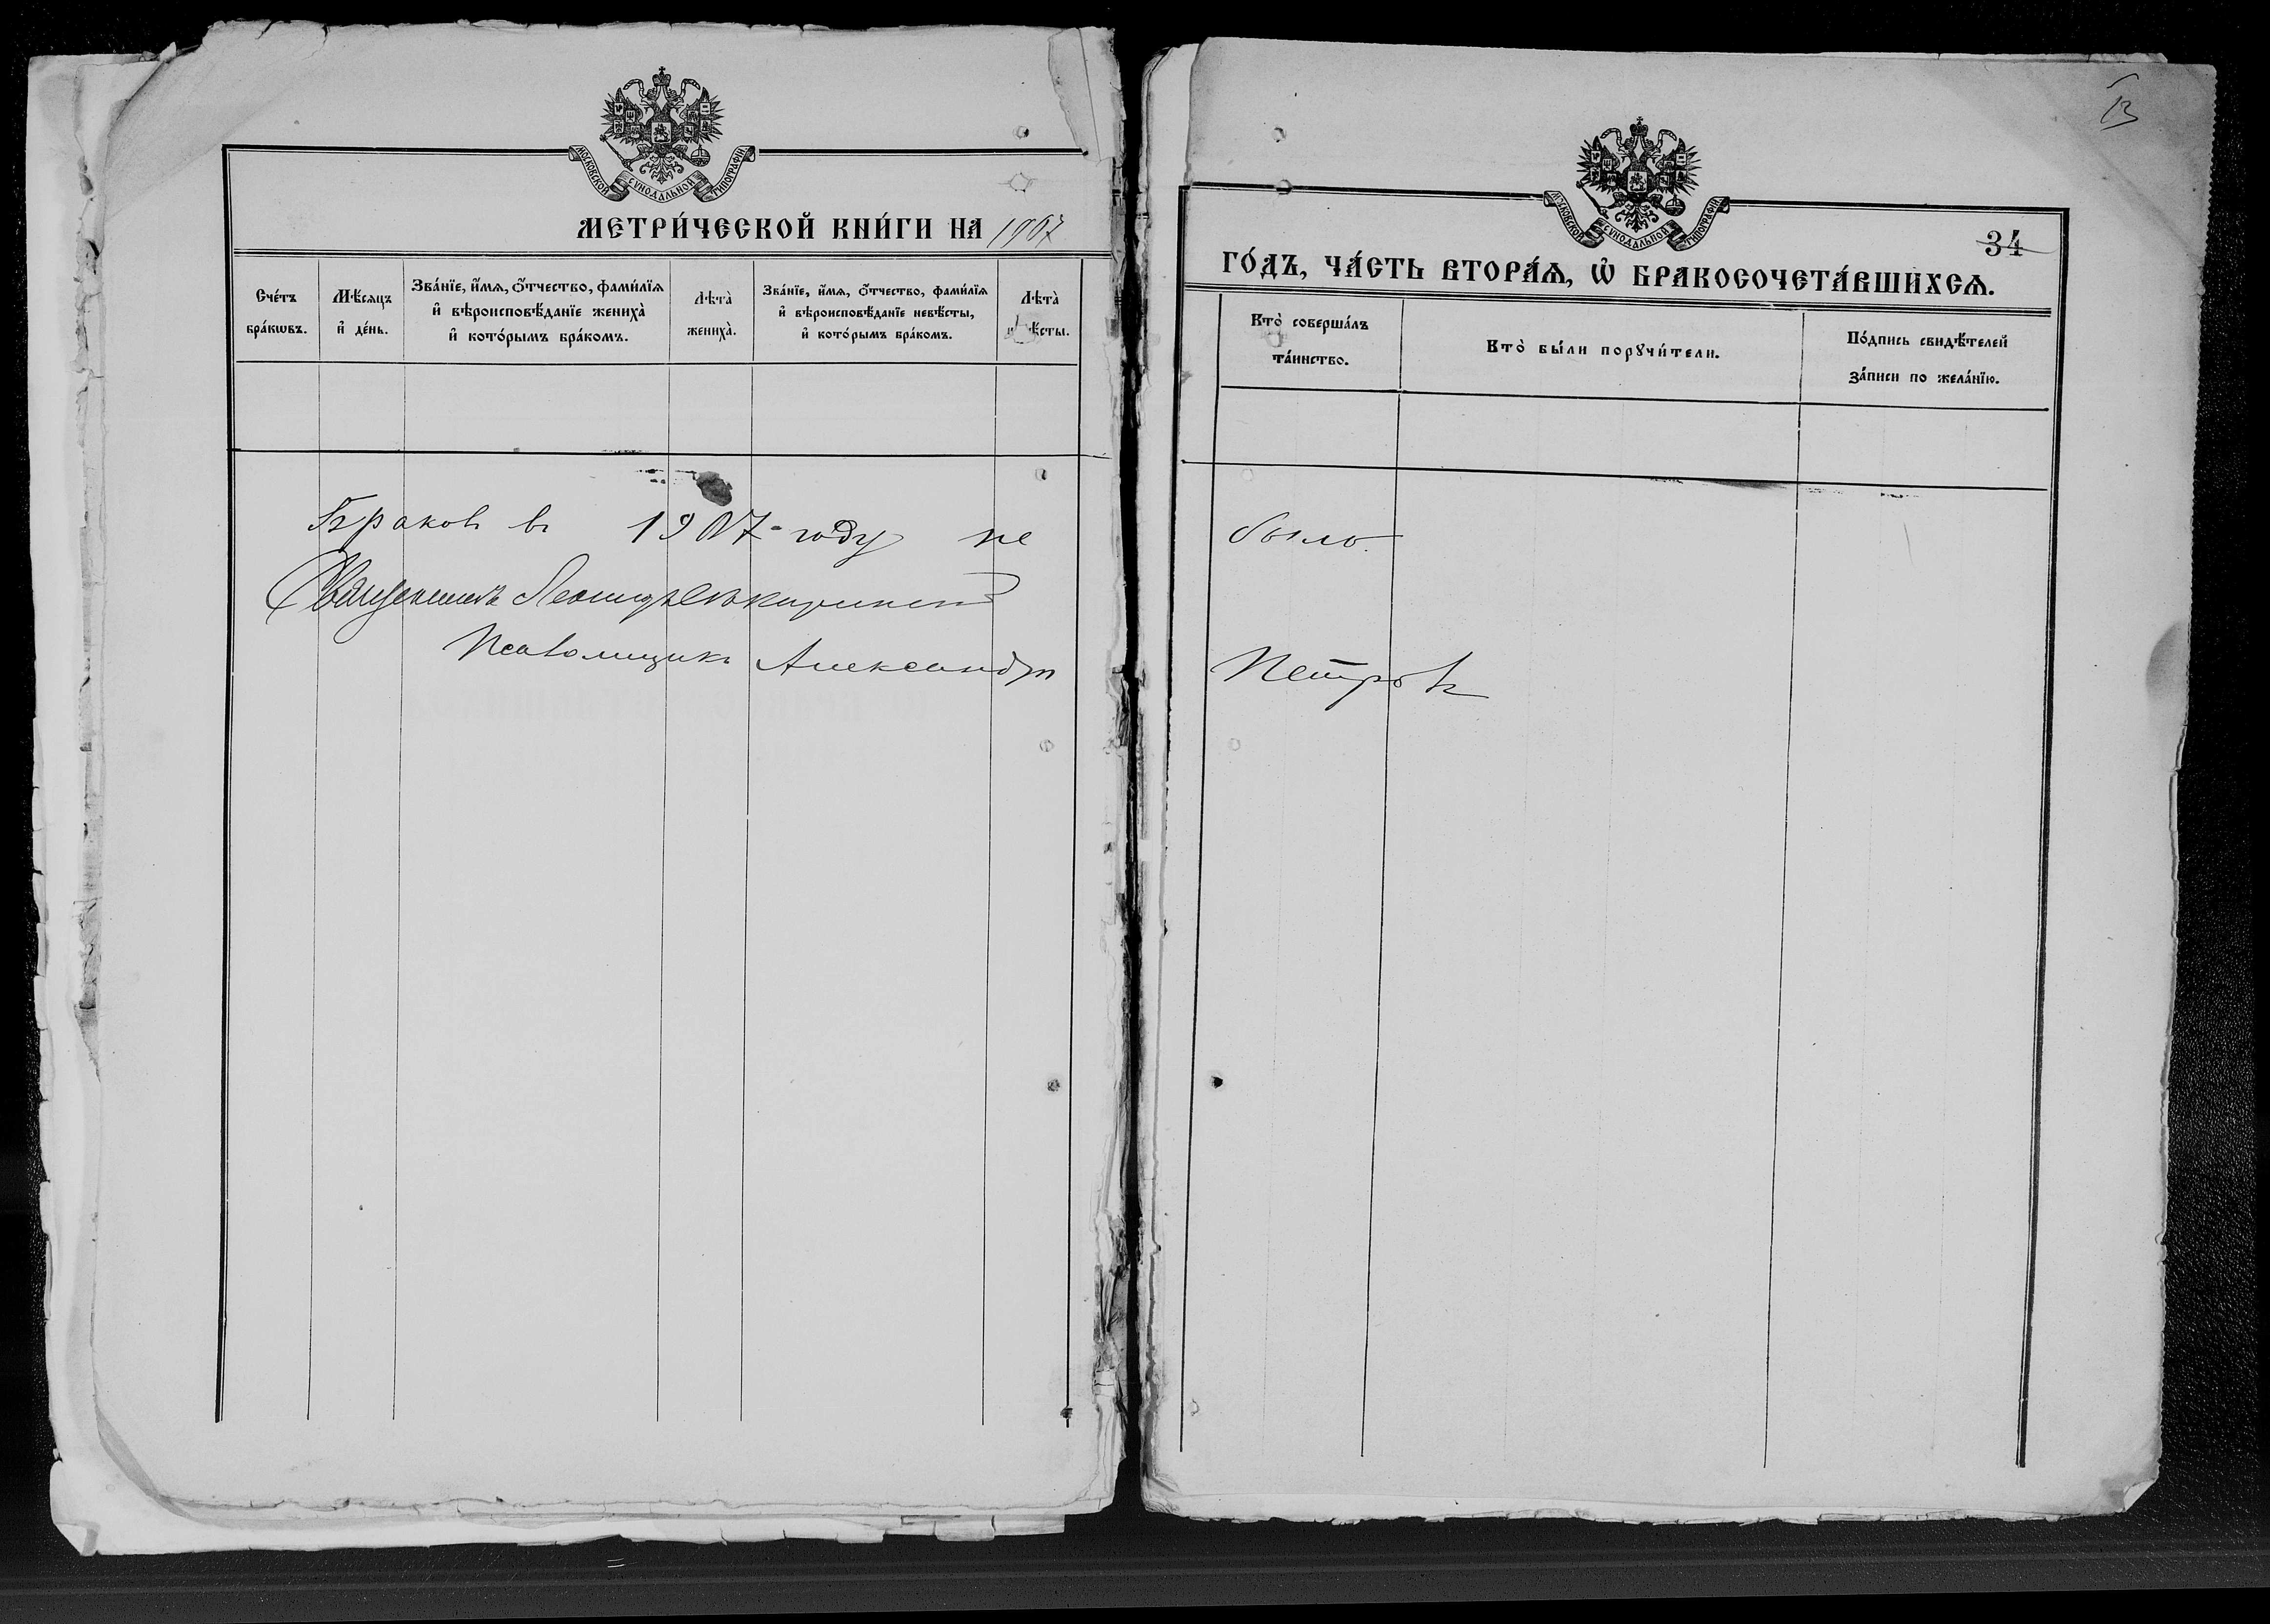 МОСКОВСКОЙ СѴНОДАЛЬНОЙ ТИПОГРАФІИ
МЕТРИ́ЧЕСКОЙ КНИ́ГИ НА 1907
Сче́тъ бра́кѡвъ.
Мѣ́сяцъ и҆ де́нь.
Зва́нїе, и҆́мѧ, ѻ҆́тчество, фами́лїѧ и҆ вѣроисповѣ́данїе жениха̀ и҆ кото́рымъ бра́комъ.
Лѣта̀ жениха̀.
Зва́нїе, и҆́мѧ, ѻ҆́тчество, фами́лїѧ и҆ вѣроисповѣ́данїе невѣ́сты, и҆ кото́рымъ бра́комъ.
Лѣта̀ невѣ́сты.
Браковъ въ 1907 году не
Священникъ Леонидъ
Псаломщикъ Александръ
13
МОСКОВСКОЙ СѴНОДАЛЬНОЙ ТИПОГРАФІИ
34
ГО́ДЪ, ЧА́СТЬ ВТОРА́Ѧ, Ѡ҆ БРАКОСОЧЕТА́ВШИХСѦ.
Кто̀ соверша́лъ та́инство.
Кто̀ бы́ли порꙋчи́тели.
По́дпись свидѣ́телей за́писи по жела́нїю.
было.
Петровъ